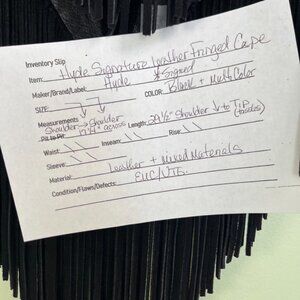 Inventory Slip
Item: Hyde Signature Leather Fringed Cape
Maker/Brand/Label: Hyde * Signed
SIZE: COLOR: Black + Multi Color
Measurements
Shoulder → Shoulder
Pit to Pit across Length: 29½" Shoulder ↓ to Tip
(tassles)
Waist: Inseam: Rise:
Sleeve:
Material: Leather + Mixed Materials
Condition/Flaws/Defects: EUC/VTG.